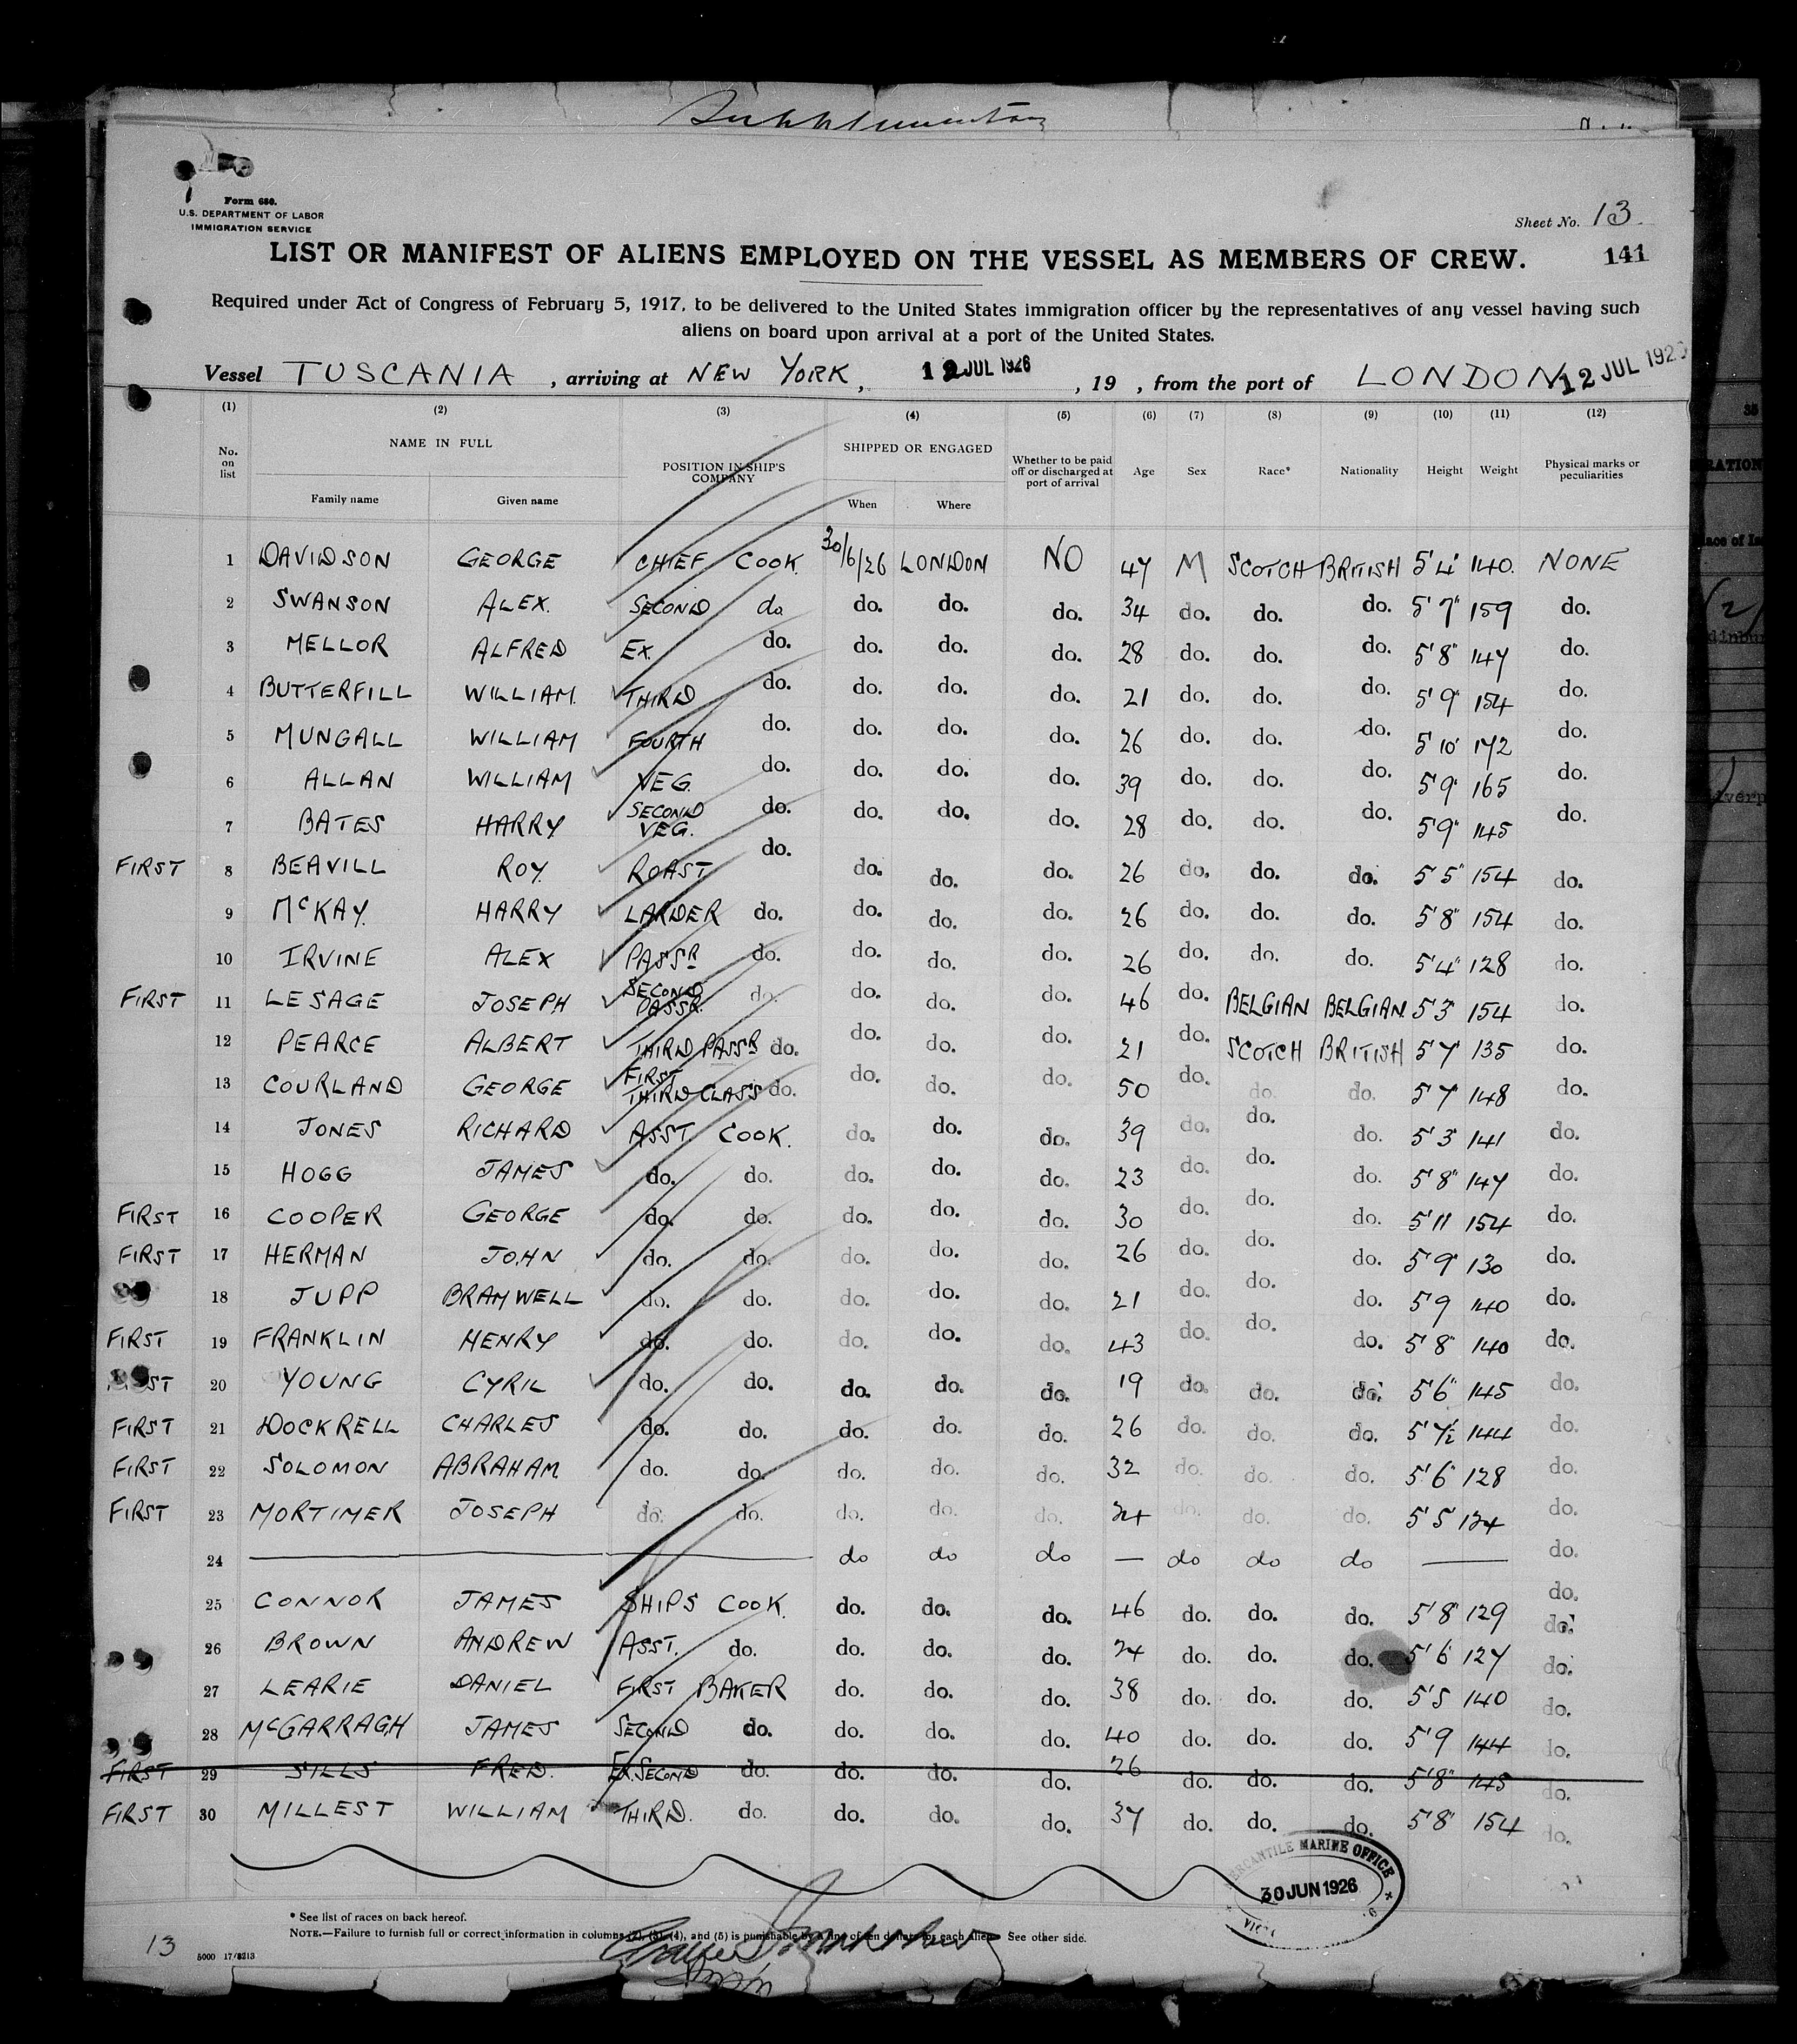 Supplementary
Form 680.
U.S. DEPARTMENT OF LABOR
IMMIGRATION SERVICE
Sheet No. 13
LIST OR MANIFEST OF ALIENS EMPLOYED ON THE VESSEL AS MEMBERS OF CREW.
141
Required under Act of Congress of February 5, 1917, to be delivered to the United States immigration officer by the representatives of any vessel having such
aliens on board upon arrival at a port of the United States.
Vessel TUSCANIA, arriving at NEW YORK, 12 JUL 1926, 19 , from the port of LONDON 12 JUL 1926
(1) (2) (3) (4) (5) (6) (7) (8) (9) (10) (11) (12)
No. on list NAME IN FULL Family name Given name POSITION IN SHIP'S COMPANY SHIPPED OR ENGAGED When Where Whether to be paid off or discharged at port of arrival Age Sex Race* Nationality Height Weight Physical marks or peculiarities
1 DAVIDSON GEORGE CHIEF COOK. 30/6/26 LONDON NO 47 M SCOTCH BRITISH 5'4" 140. NONE
2 SWANSON ALEX. SECOND do do. do. do. 34 do. do. do. 5'7" 159 do.
3 MELLOR ALFRED EX. do. do. do. do. 28 do. do. do. 5'8" 147 do.
4 BUTTERFILL WILLIAM. THIRD do. do. do. do. 21 do. do. do. 5'9" 154 do.
5 MUNGALL WILLIAM FOURTH do. do. do. do. 26 do. do. do. 5'10" 172 do.
6 ALLAN WILLIAM VEG. do. do. do. do. 39 do. do. do. 5'9" 165 do.
7 BATES HARRY SECOND VEG. do. do. do. do. 28 do. do. do. 5'9" 145 do.
FIRST 8 BEAVILL ROY. ROAST do. do. do. do. 26 do. do. do. 5'5" 154 do.
9 McKAY. HARRY LARDER do. do. do. do. 26 do. do. do. 5'8" 154 do.
10 IRVINE ALEX PASSR do. do. do. do. 26 do. do. do. 5'4" 128 do.
FIRST 11 LESAGE JOSEPH SECOND PASSR. do. do. do. do. 46 do. BELGIAN BELGIAN. 5'3" 154 do.
12 PEARCE ALBERT THIRD PASSR do. do. do. do. 21 do. SCOTCH BRITISH 5'7" 135 do.
13 COURLAND GEORGE FIRST THIRD CLASS do. do. do. do. 50 do. do. do. 5'7 148 do.
14 JONES RICHARD ASST. COOK. do. do. do. 39 do. do. do. 5'3" 141 do.
15 HOGG JAMES do. do. do. do. do. 23 do. do. do. 5'8" 147 do.
FIRST 16 COOPER GEORGE do. do. do. do. do. 30 do. do. do. 5'11 154 do.
FIRST 17 HERMAN JOHN do. do. do. do. do. 26 do. do. do. 5'9" 130 do.
18 JUPP BRAMWELL do. do. do. do. do. 21 do. do. do. 5'9 140 do.
FIRST 19 FRANKLIN HENRY do. do. do. do. do. 43 do. do. do. 5'8" 140 do.
20 YOUNG CYRIL do. do. do. do. do. 19 do. do. do. 5'6" 145 do.
FIRST 21 DOCKRELL CHARLES do. do. do. do. do. 26 do. do. do. 5'7½ 144 do.
FIRST 22 SOLOMON ABRAHAM do. do. do. do. do. 32 do. do. do. 5'6" 128 do.
FIRST 23 MORTIMER JOSEPH do. do. do. do. do. 24 do. do. do. 5'5 124 do.
24 — do do do — do do do — do.
25 CONNOR JAMES SHIPS COOK. do. do. do. 46 do. do. do. 5'8" 129 do.
26 BROWN ANDREW ASST. do. do. do. do. 24 do. do. do. 5'6" 127 do.
27 LEARIE DANIEL FIRST BAKER do. do. do. 38 do. do. do. 5'5 140 do.
28 McGARRAGH JAMES SECOND do. do. do. do. 40 do. do. do. 5'9 144 do.
FIRST 29 SILLS FRED. EX. SECOND do. do. do. do. 26 do. do. do. 5'8" 145 do.
FIRST 30 MILLEST WILLIAM THIRD. do. do. do. do. 37 do. do. do. 5'8" 154 do.
MERCANTILE MARINE OFFICE
30 JUN 1926
* See list of races on back hereof.
NOTE.—Failure to furnish full or correct information in columns (2), (3), (4), and (5) is punishable by a fine of ten dollars for each alien. See other side.
13 5000 17/8213